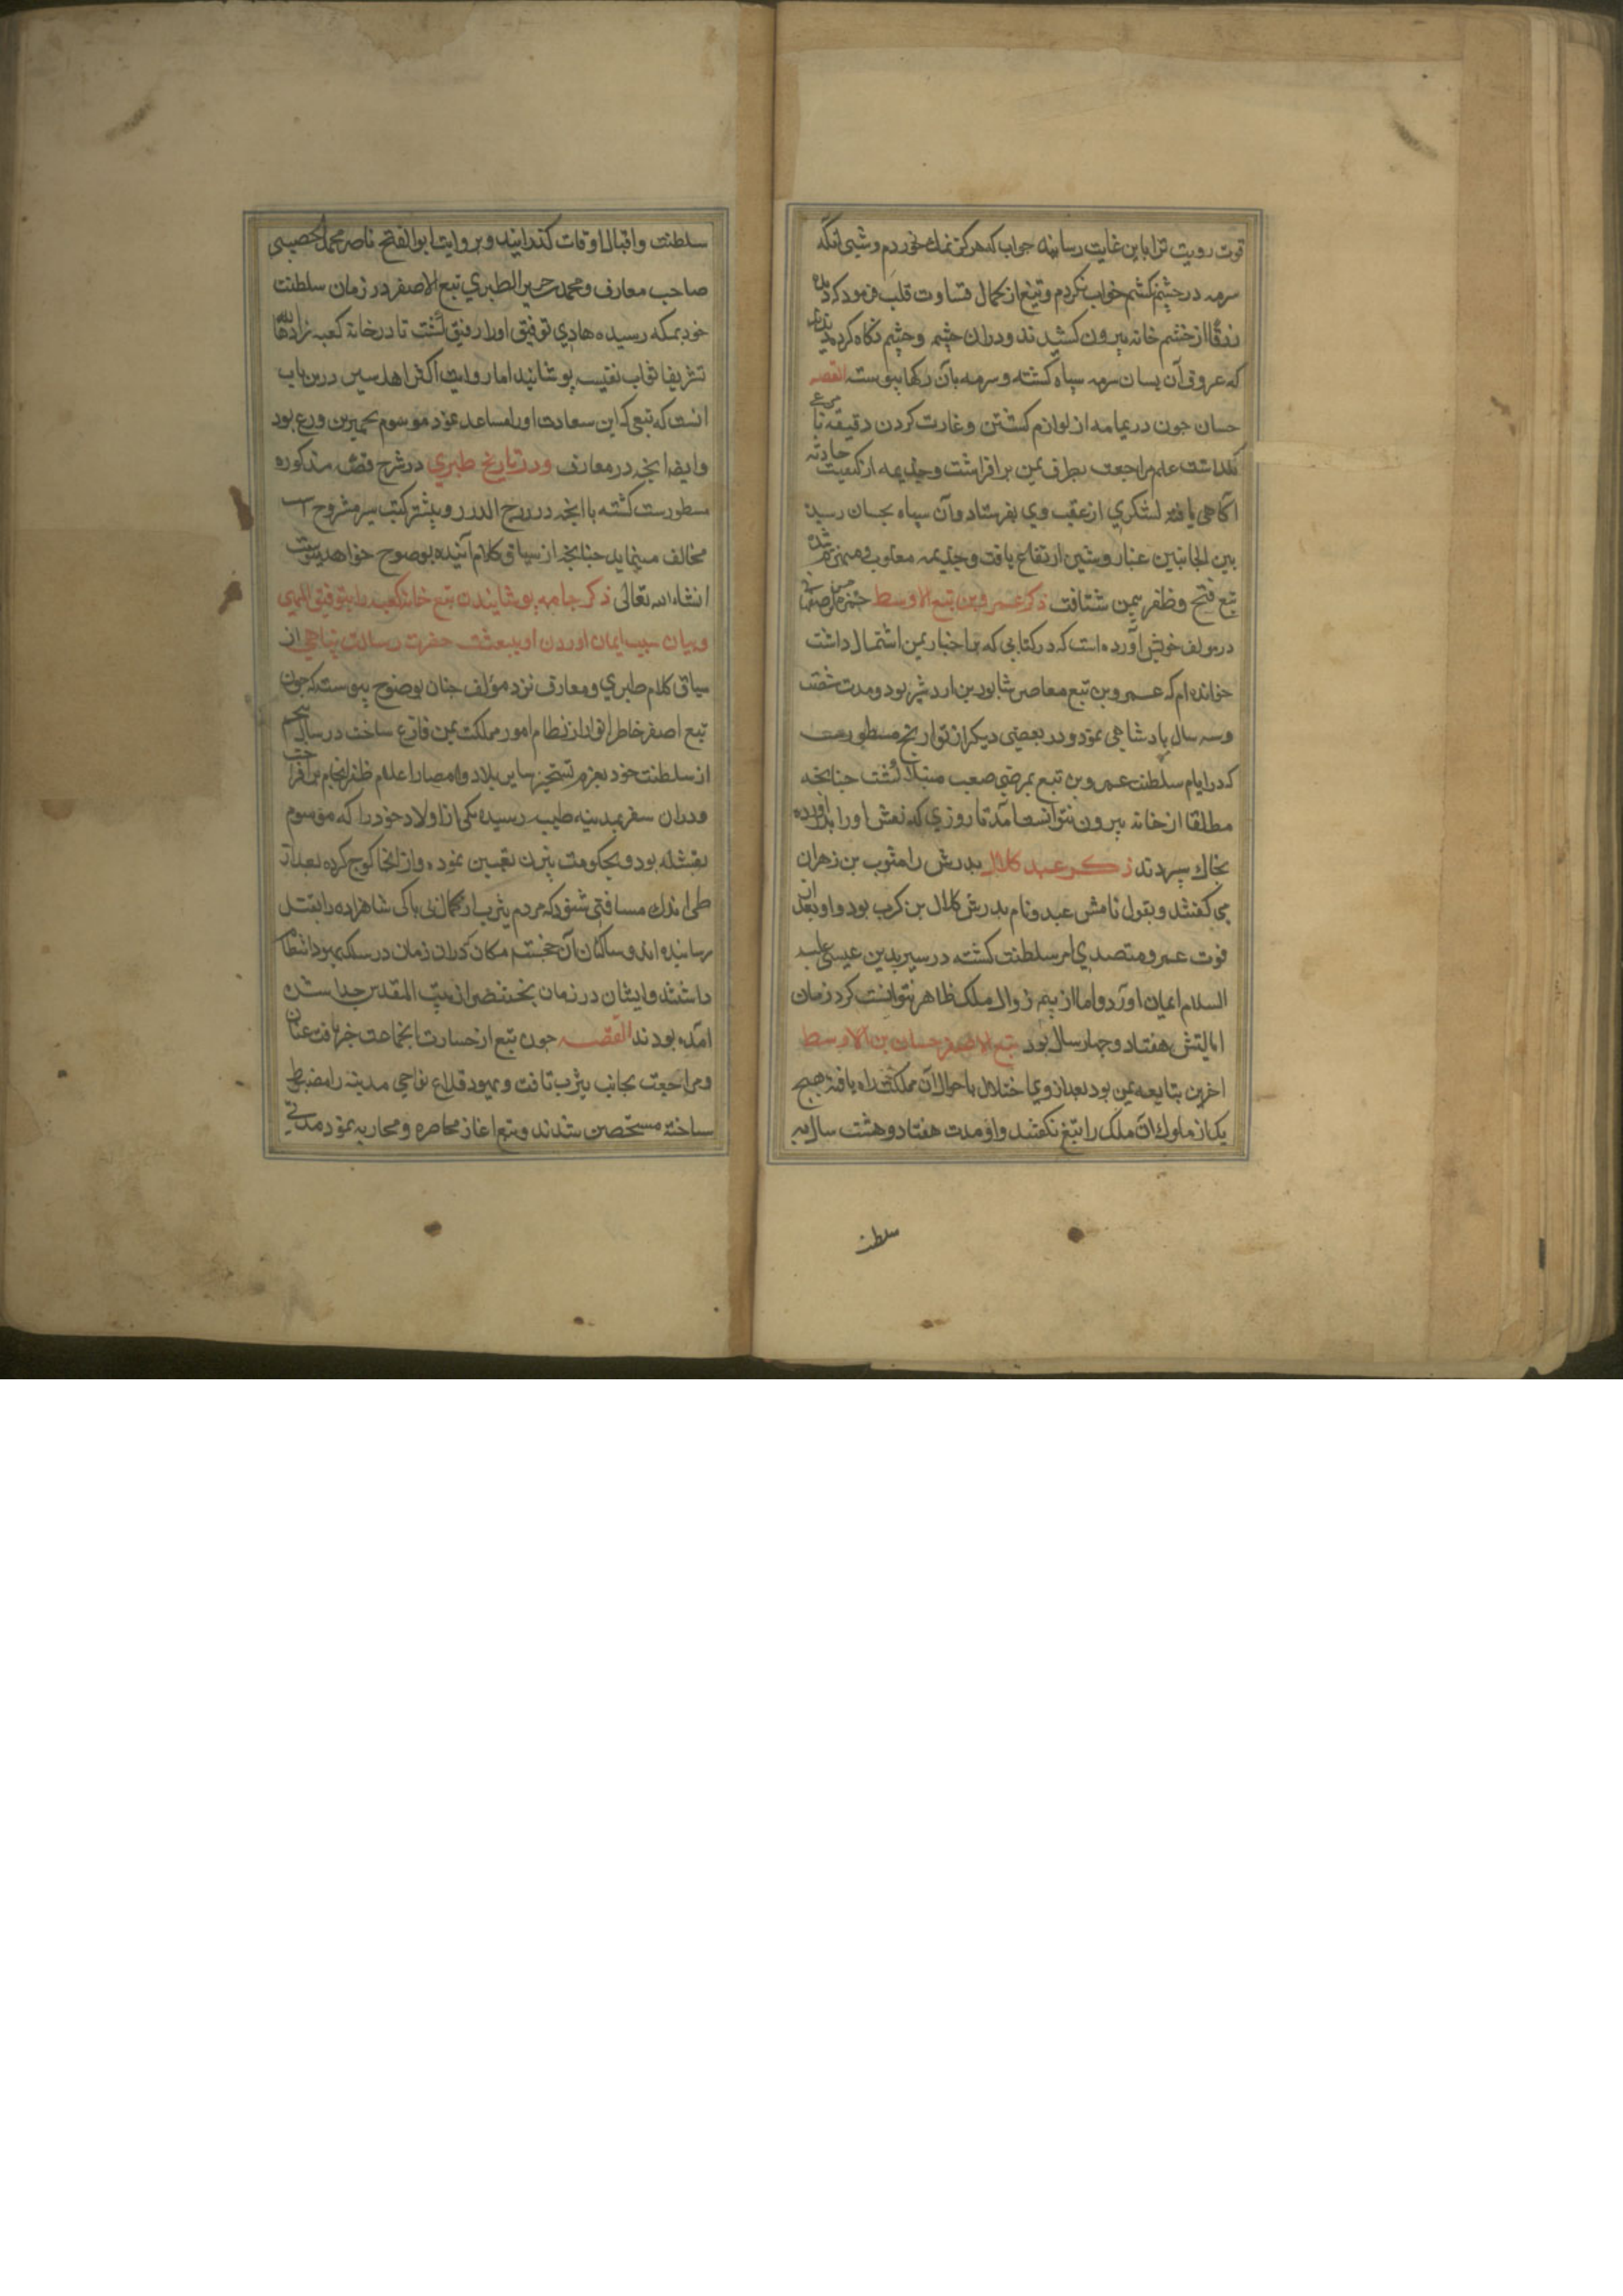 قوت رویت ترا باین غایت رسانیده جواب که هرگز نمک نخوردم و شبی انکه
سرمه در چشم نکشم خواب نکردم و تبع از کمال قساوت قلب فرمود که
زرقا از چشم خانه بیرون کشیدند و دران چشم نگاه کردند
که عروق آن بسان سرمه سیاه گشته و سرمه بان رکها پیوسته القصه
حسان چون در یمامه از لوازم کشتن و غارت کردن دقیقه نا مرعی
نگذاشت علم مراجعت بطرف یمن برافراشت و جذیمه از کیفیت حادثه
آگاهی یافته لشکری از عقب وی بفرستاد و آن سپاه بحسان رسیده
بین الجانبین غبار و شین ارتفاع یافت و جذیمه مغلوب و منهزم شده
تبع فتح و ظفر بیمن شتافت ذکر عمرو بن تبع الاوسط حمزه
در مولف خویش آورده است که در کتابی که بر اخبار یمن اشتمال داشت
خوانده ام که عمرو بن تبع معاصر شابور بن اردشیر بود و مدت شصت
و سه سال پادشاهی نمود و در بعضی دیگر از تواریخ مسطورست
که در ایام سلطنت عمرو بن تبع بمرضی صعب مبتلا گشت چنانچه
مطلقا از خانه بیرون نتوانست آمد تا روزی که نعش او را بدر آورده
بخاک سپردند ذکر عبد کلال پدرش را مثوب بن زهران
می گفتند و بقول نامش عبد و نام پدرش کلال بن کرب بود و او بعد از
فوت عمرو متصدی امر سلطنت گشته در سیر بدین عیسی علیه
السلام ایمان آورد و اما از بیم زوال ملک ظاهر نتوانست کرد زمان
ایالتش هفتاد و چهار سال بود تبع الاصغر حسان بن الاوسط
اخرین تبایعه یمن بود بعد از وی اختلال باحوال آن مملکت راه یافته هیچ
یک از ملوک آن ملک را تبع نگفتند و او مدت هفتاد و هشت سال به
سلطنت
سلطنت و اقبال اوقات گذرانید و بروایت ابو الفتح ناصر محمد الحصیبی
صاحب معارف و محمد جریر الطبری تبع الاصغر در زمان سلطنت
خود بمکه رسیده هادی توفیق او را رفیق گشت تا در خانه کعبه زادها الله
تشریفا ثیاب نفیسه پوشانید اما روایت اکثر اهل سیر درین باب
انست که تبعی که این سعادت او را مساعد نمود موسوم بحمیر بن ورع بود
و ایضا انچه در معارف و در تاریخ طبری در شرح قصه مذکوره
مسطورست گشته با انچه در درج الدرر و بیشتر کتب سیر مشروح است
مخالف مینماید چنانچه از سیاق کلام آینده بوضوح خواهد پیوست
انشاء الله تعالی ذکر جامه پوشانیدن تبع خانه کعبه را بتوفیق الهی
و بیان سبب ایمان آوردن او ببعثت حضرت رسالت پناهی از
سیاق کلام طبری و معارف نزد مؤلف چنان بوضوح پیوست که چون
تبع اصغر خاطر انوار از نظام امور مملکت یمن فارغ ساخت در سال پنجم
از سلطنت خود بعزم تسخیر سایر بلاد و امصار اعلام ظفر انجام برافراخت
و دران سفر بمدینه طیبه رسیده یکی از اولاد خود را که موسوم
بود و بحکومت یثرب تعیین نموده و از انجا کوچ کرده بعد از
طی اندک مسافتی شنود که مردم یثرب از کمال بی باکی شاهزاده را بقتل
رسانیده اند و ساکنان آن خجسته مکان که دران زمان در سلک یهود انتظام
داشتند و ایشان در زمان بختنصر از بیت المقدس جدا شده
آمده بودند القصه چون تبع از خسارت انجماعت خبر یافت عنان
و مراجعت بجانب یثرب تافت و یهود قلاع نواحی مدینه را مضبوط
ساخته متحصن شدند و تبع اغاز محاصره و محاربه نمود مدتی